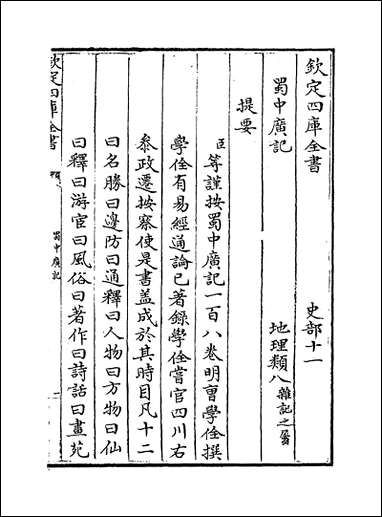 欽定四庫全書 史部十一
蜀中廣記 地理類八雜記之屬
提要
臣等謹按蜀中廣記一百八卷明曹學佺撰
學佺有易經通論已著錄學佺嘗官四川右
叅政遷按察使是書盖成於其時目凡十二
曰名勝曰邊防曰通釋曰人物曰方物曰仙
曰釋曰游宦曰風俗曰著作曰詩話曰畫苑
欽定四庫全書
蜀中廣記
一